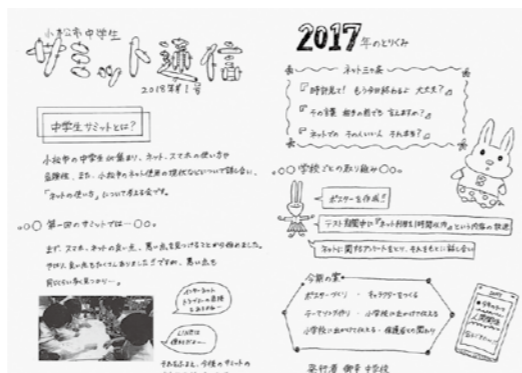 小松市中学生
サミット通信
2018年第1号
中学生サミットとは?
小松市の中学生が集まり、ネット、スマホの使い方や
危険性、また、小松市のネット使用の現状などについて話し合い、
「ネットの使い方」について考える会です。
第一回のサミットでは…
まず、スマホ、ネットの良い点、悪い点を見つけることから始めました。
やはり、良い点もたくさんありました!!ですが、悪い点も
同じくらい多く見つかり…。
インターネット
トラブルの危険
LINEは
便利だけど…
それをふまえ、今後のサミットの
2017年のとりくみ
ネット三か条
『時計見て! もう今日終わるよ 大丈夫?』
『その言葉 相手の前でも 言えますか?』
『ネットでの そのいいい人 それ本当?』
学校ごとの取り組み
ポスターを作成!!
テスト期間中に『ネット利用を1時間以内』という内容の放送
ネットに関するアンケートをとり、それをもとに話し合い
今期の案
ポスターづくり ・ キャラクターをつくる
テーマソング作り ・ 小学校に出かけて伝える
小学校に出かけて伝える ・ 保護者との関わり
発行者 御幸 中学校